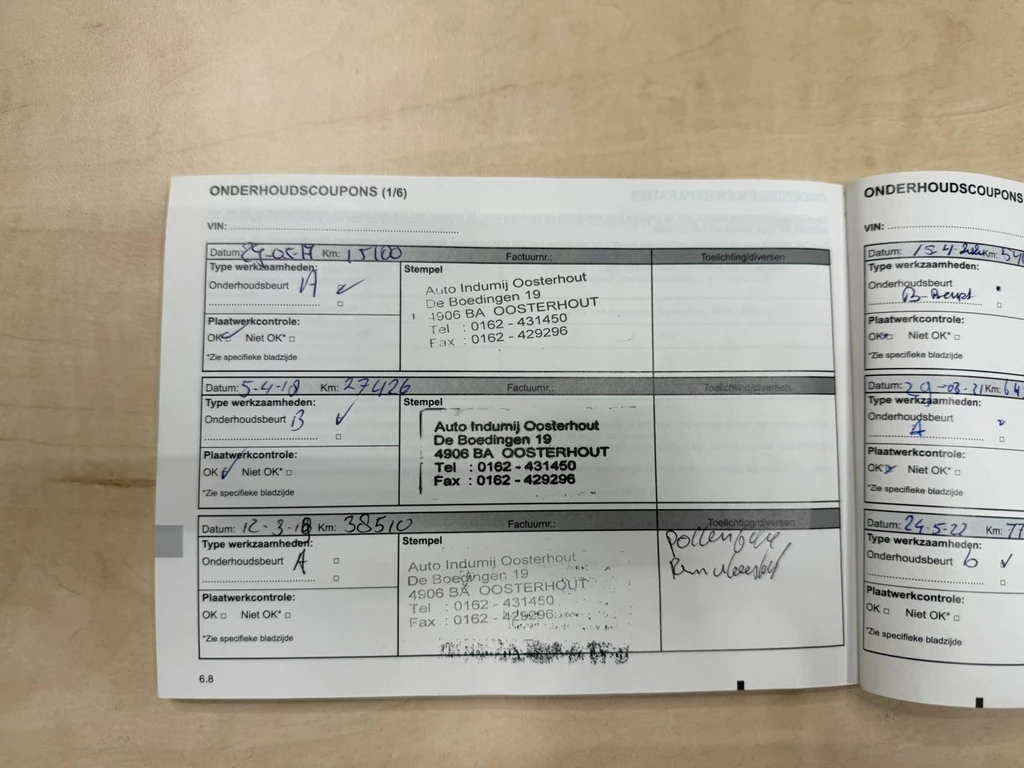 ONDERHOUDSCOUPONS (1/6)
VIN:
Datum: 29-05-17 Km: 15100 Factuurnr.: Toelichting/diversen
Type werkzaamheden:
Onderhoudsbeurt A
Plaatwerkcontrole:
OK Niet OK*
*Zie specifieke bladzijde
Stempel
Auto Indumij Oosterhout
De Boedingen 19
4906 BA OOSTERHOUT
Tel : 0162 - 431450
Fax : 0162 - 429296
Datum: 5-4-18 Km: 27426 Factuurnr.: Toelichting/diversen
Type werkzaamheden:
Onderhoudsbeurt B
Plaatwerkcontrole:
OK Niet OK*
*Zie specifieke bladzijde
Stempel
Auto Indumij Oosterhout
De Boedingen 19
4906 BA OOSTERHOUT
Tel : 0162 - 431450
Fax : 0162 - 429296
Datum: 12-3-18 Km: 38510 Factuurnr.: Toelichting/diversen
Type werkzaamheden:
Onderhoudsbeurt A
Plaatwerkcontrole:
OK Niet OK*
*Zie specifieke bladzijde
Stempel
Auto Indumij Oosterhout
De Boedingen 19
4906 BA OOSTERHOUT
Tel : 0162 - 431450
Fax : 0162 - 429296
6.8
ONDERHOUDSCOUPONS
VIN:
Datum: 15-4- Km:
Type werkzaamheden:
Onderhoudsbeurt
B-Beurt
Plaatwerkcontrole:
OK Niet OK*
*Zie specifieke bladzijde
Datum: 29-03-21 Km: 64
Type werkzaamheden:
Onderhoudsbeurt
A
Plaatwerkcontrole:
OK Niet OK*
*Zie specifieke bladzijde
Datum: 24-5-22 Km: 77
Type werkzaamheden:
Onderhoudsbeurt b
Plaatwerkcontrole:
OK Niet OK*
*Zie specifieke bladzijde